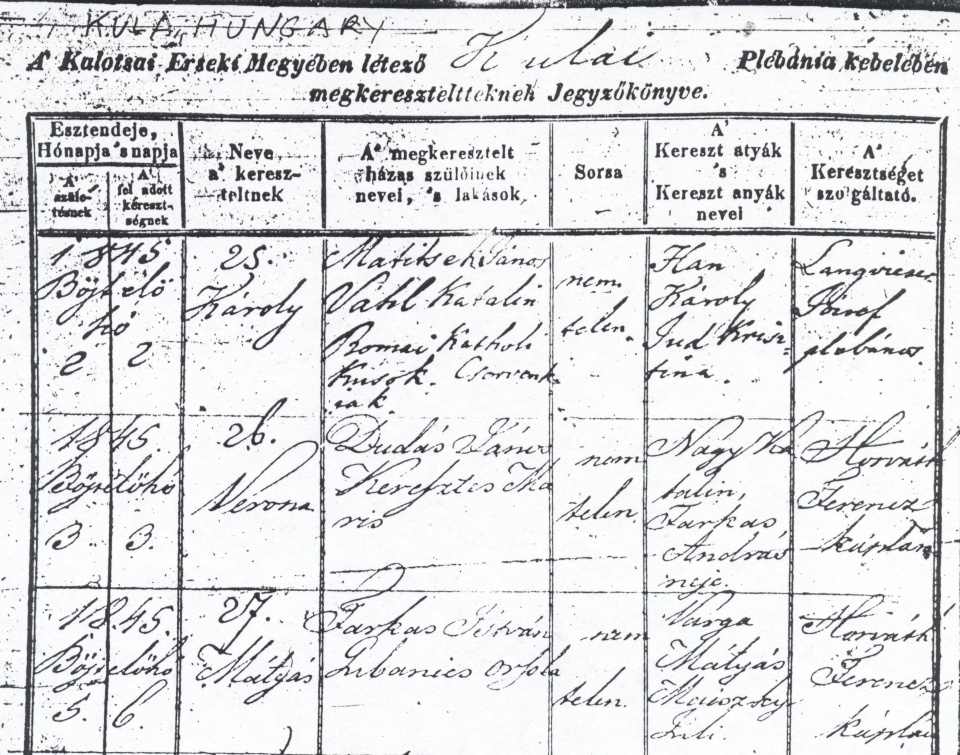 KULA, HUNGARY
A' Kalotsai Érseki Megyében létező Kulai Plébánia kebelében
megkereszteltteknek Jegyzőkönyve.
Esztendeje,
Hónapja 's napja
A'
szüle-
tésnek
A'
fel adott
kereszt-
ségnek
Neve
a' keresz-
teltnek
A' megkeresztelt
házas szülőinek
nevei, 's lakások.
Sorsa
A'
Kereszt atyák
's
Kereszt anyák
nevei
A'
Keresztséget
szolgáltató.
1845
Böjtelő
hó
2 2
25.
Károly
Matitsek János
Vahl Katalin
Romai Katholi
kusok. Cservenk
iak.
nem
telen.
Han
Károly
Jud Krisz-
tina.
József
plébános.
1845.
Böjtelőhó
3. 3.
26.
Verona
Dudás János
Keresztes Ma
ris
nem
telen.
Nagy Ka
talin,
Farkas
András
neje.
Horváth
Ferencz
káplán
1845.
Böjtelőhó
5. 6.
27.
Mátyás
Farkas István
Urbanics Orsola
nem
telen.
Varga
Mátyás
Juli.
Horváth
Ferencz
káplán